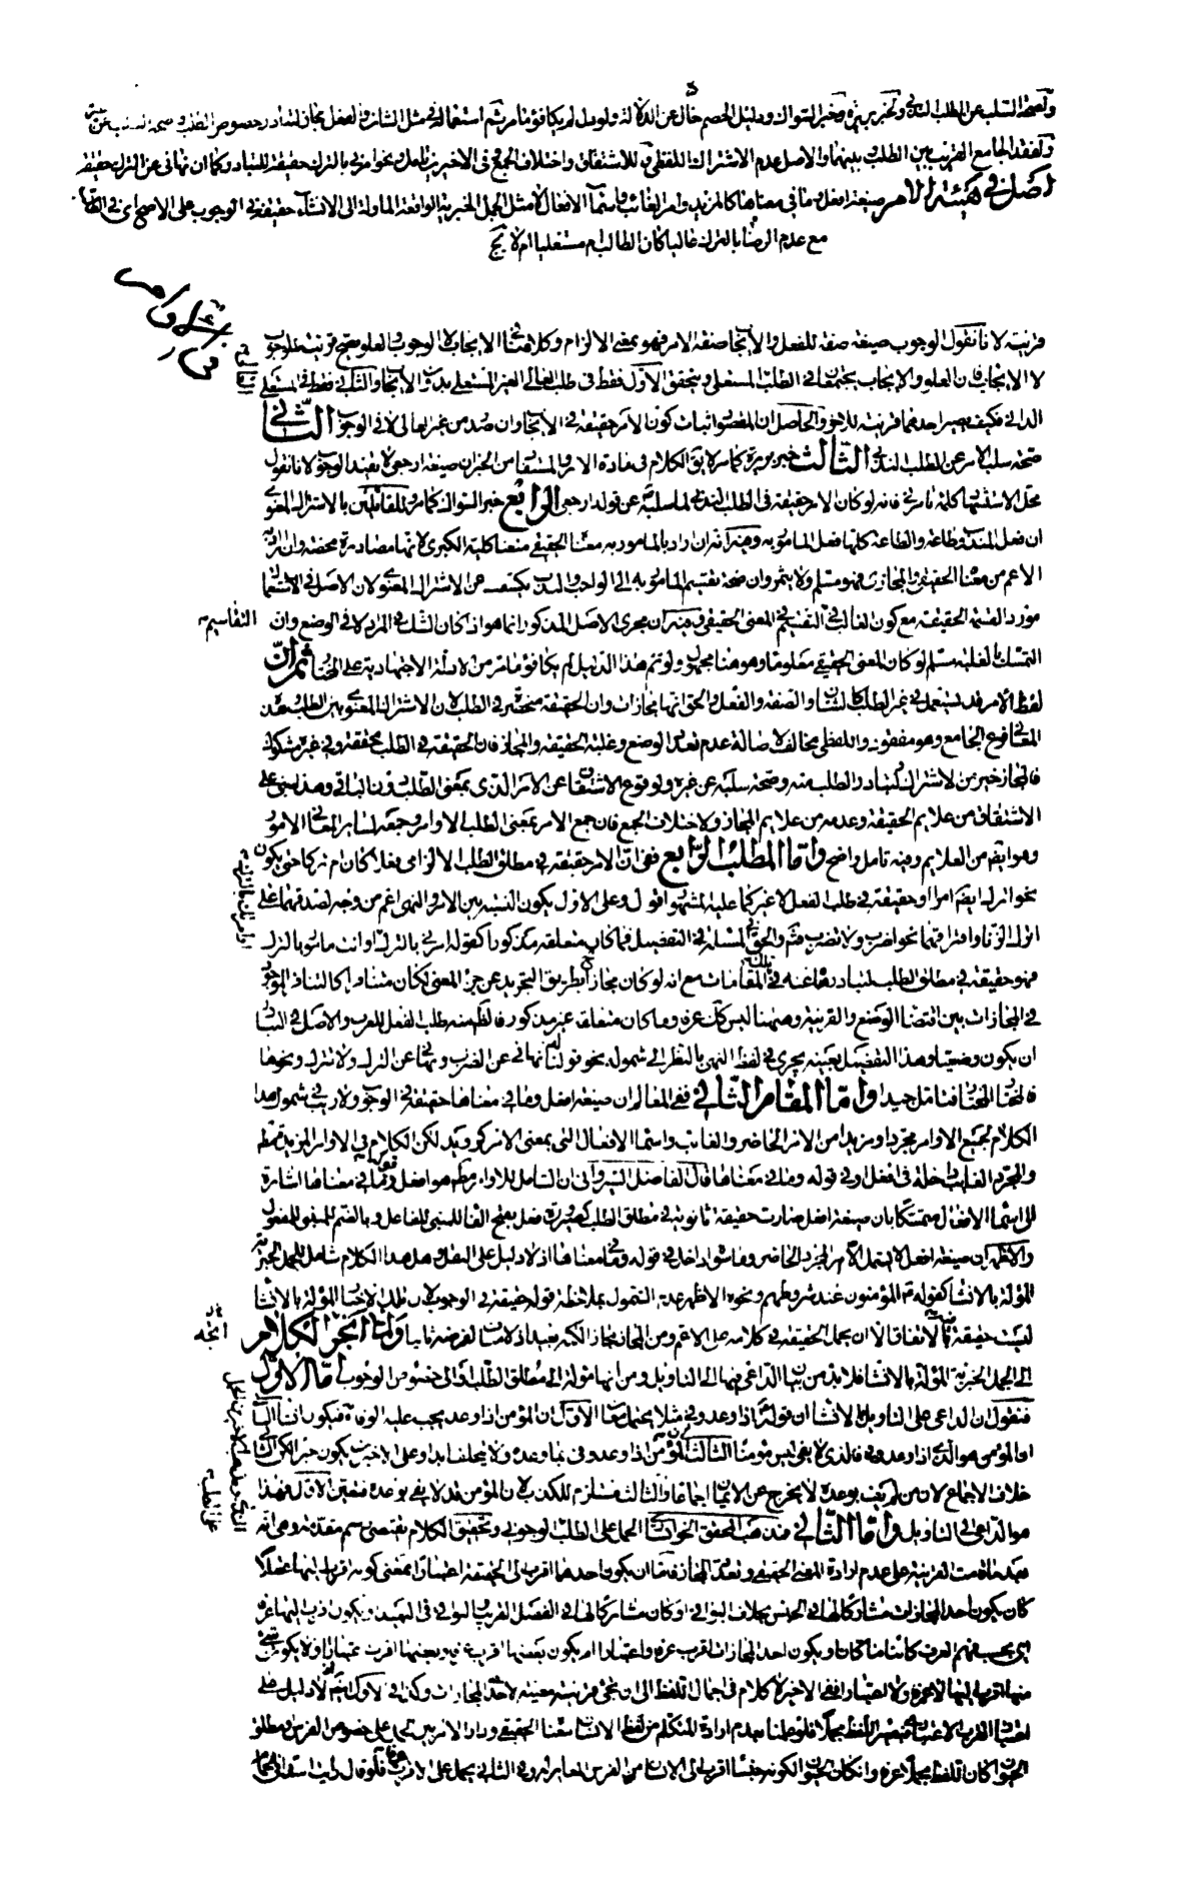 ولصحة السلب عن الطلب الندبي وخبر بريرة وخبر السواك ودليل الخصم خال عن الدلالة ولو دل لم يكافؤ ما مر ثم استعماله في مثل الشان والفعل مجاز لتبادر خصوص الطلب وصحة السلب عن
ولفقد الجامع القريب بين الطلب وبينها والاصل عدم الاشتراك اللفظي وللاشتقاق واختلاف الجمع في الاخيرين ونحو امرني بالترك حقيقة للتبادر كما ان نهاني عن الترك حقيقة
اصل في هيئة الامر صيغة افعل وما في معناها كالمزيد وامر الغائب واسماء الافعال لا مثل الجمل الخبرية الواقعة الماولة الى الانشاء حقيقة في الوجوب على الاصح اي في الطلب
مع عدم الرضا بالترك عاليا كان الطالب ام مستعليا ام لا
قرينة لانا نقول الوجوب صفة للفعل والايجاب صفة الامر فهو بمعنى الالزام وكلامنا في الايجاب لا الوجوب والعلو يصح قرينة على الوجوب
لا الايجاب فان العلو والايجاب يجتمعان في الطلب المستعلي ويتحقق الاول فقط في طلب العالي الغير المستعلي بدون الايجاب والثاني فقط في المستعلي
الداني فكيف يصير احدهما قرينة للاخر والحاصل ان المقصود اثبات كون الامر حقيقة في الايجاب وان صدر من غير العالي لا في الوجوب الثاني
صحة سلب الامر عن الطلب الندبي الثالث خبر بريرة كما مر لا يقال الكلام في مادة الامر والمستفاد من الخبر ان صيغة ارجعي لا تفيد الوجوب لانا نقول
محل الاستشهاد كلمة تامرني فانه لو كان الامر حقيقة في الطلب الندبي لما سلبه عن قوله ارجعي الرابع خبر السواك كما مر وللقائلين بالاشتراك المعنوي
ان فعل المندوب طاعة والطاعة كلها فعل المامور به وفيه انه ان اراد بالمامور به معناه الحقيقي منعنا كلية الكبرى لانها مصادرة محضة وان اراد
الاعم من معناه الحقيقي والمجازي فهو مسلم ولا يثمر وان صحة تقسيم المامور به الى الواجب والندب يكشف عن الاشتراك المعنوي لان الاصل في الاستعمال
مورد القسمة الحقيقة مع كون الغالب في التقسيم في المعنى الحقيقي وفيه ان مجرى الاصل المذكور انما هو اذا كان الشك في المراد لا في الوضع وان
التقاسيم
التمسك بالغلبة مسلم لو كان المعنى الحقيقي معلوما وهو هنا مجهول ولو تم هذا الدليل لم يكافؤ ما مر من الادلة الاجتهادية على المختار ثم ان
لفظ الامر قد يستعمل في غير الطلب كالشان والصفة والفعل والحق انها مجازات وان الحقيقة منحصرة في الطلب لان الاشتراك المعنوي بين الطلب وهذه
المعاني فرع الجامع وهو مفقود واللفظي مخالف لاصالة عدم تعدد الوضع وغلبة الحقيقة والمجاز فان الحقيقة في الطلب محققة وفي غيره مشكوك
فالمجاز خير من الاشتراك ولتبادر الطلب منه وصحة سلبه عن غيره ولوقوع الاشتقاق عن الامر الذي بمعنى الطلب دون الباقي وهذا مبني على
الاشتقاق من علايم الحقيقة وعدمه من علايم المجاز ولاختلاف الجمع فان جمع الامر بمعنى الطلب الاوامر وجمعه لسائر المعاني الامور
وهو ايضا من العلايم وفيه تامل واضح واما المطلب الرابع ففي ان الامر حقيقة في مطلق الطلب الالزامي فعلا كان ام تركا حتى يكون
نحو اترك ايضا امرا او حقيقة في طلب الفعل لا غير كما عليه المشهور اقول وعلى الاول يكون النسبة بين الامر والنهي اعم من وجه لتصادقهما على
اترك الزنا وافتراقهما نحو اضرب ولا تضرب ثم الحق في المسئلة التفصيل فما كان متعلقه مذكورا كقوله امرني بالترك او انت مامور بالترك
فهو حقيقة في مطلق الطلب لتبادره عنه في تلك المقامات مع انه لو كان مجازا بطريق التجريد عن جزء المعنى لكان متنافرا كالتنافر الموجود
في المجازات بين اقتضاء الوضع والقرينة وههنا ليس كذلك عرفا وما كان متعلقه غير مذكور فالظاهر منه طلب الفعل للعرف والاصل في التبادر
ان يكون وضعيا وهذا التفصيل بعينه يجري في لفظ النهي بالنظر الى شموله نحو قولنا نهاني عن الضرب ونهاني عن الترك ولا تترك ونحوها
فالمختار المختار فتامل جيدا واما المقام الثاني ففي المقال ان صيغة افعل وما في معناها حقيقة في الوجوب ولا ريب في شمول هذا
الكلام لجميع الاوامر مجردا ومزيدا من الامر الحاضر والغائب واسماء الافعال التي بمعنى الامر كرويد لكن الكلام في الاوامر المزيد فيها
والمجرد الغائب داخلة في افعل او في قوله وما في معناها قال الفاضل الشيرواني ان الشامل للاوامر كلها هو افعل وقوله وما في معناها اشارة
الى اسماء الافعال متمسكا بان صيغة افعل صارت حقيقة ثانوية في مطلق الطلب كصيرورة فعل بفتح الفاء للمبني للفاعل وبالضم للمبني للمفعول
والاظهر ان صيغة افعل لا يشمل الا الامر المجرد الحاضر وما سواه داخل في قوله وما في معناها اذ لا دليل على النقل وهل هذا الكلام شامل للجمل الخبرية
المؤلة بالانشاء كقوله المؤمنون عند شروطهم ونحوه الاظهر عدم الشمول بملاحظة قوله حقيقة في الوجوب لان طلب الاخبار المؤلة بالانشاء
ليست حقيقة فيه بالاتفاق الا ان يحمل الحقيقة في كلامه على الاعم ومن المجاز مجازا لكنه بعيد اذ لا مساس لغرضه ثانيا واما انجر الكلام
انجر
الى الجمل الخبرية المؤلة بالانشاء فلا بد من بيان الداعي فيها الى التاويل ومن انها مؤلة الى مطلق الطلب او الى خصوص الوجوب اما الاول
فنقول ان الداعي على التاويل بالانشاء ان قوله المؤمن اذا وعد وفى مثلا يحتمل معان الاول ان المؤمن اذا وعد يجب عليه الوفاء فيكون انشاء الثاني
ان المؤمن هو الذي اذا وعد وفى فالذي لا يفي ليس مؤمنا الثالث ان المؤمن اذا وعد وفى بما وعده ولا يخلف ابدا وعلى الاخيرين يكون خبرا لكن الثاني
خلاف الاجماع لان من لم يف بوعده لا يخرج عن الايمان اجماعا والثالث مستلزم للكذب لان المؤمن قد لا يفي بوعده فتعين الاول فهذا
هو الداعي الى التاويل واما الثاني فمذهب المحقق الخوانساري الحمل على الطلب الوجوبي وتحقيق الكلام يقتضي رسم مقدمة وهي انه
بعد ما قامت القرينة على عدم ارادة المعنى الحقيقي وتعدد المجاز فاما ان يكون احدها اقرب الى الحقيقة اعتبارا بمعنى كونه اقرب اليها عقلا
كان يكون احد المجازات مشاركا لها في الجنس بخلاف البواقي او كان مشاركا لها في الفصل القريب والبواقي في البعيد ويكون اقرب اليها عرفا
اي بحسب فهم العرف كائنا ما كان او يكون احد المجازات اقرب عرفا واعتبارا ام يكون بعضها اقرب عرفا وبعضها اقرب اعتبارا او لا يكون شيء
منها اقرب اليها لا عرفا ولا اعتبارا ففي الاخير لا كلام في اجمال اللفظ الى ان تجئ قرينة معينة لاحد المجازات وكذا في الاول ايضا اذ لا دليل على
اعتبار القرب الاعتباري فيصير اللفظ مجملا فلو علمنا بعدم ارادة المتكلم من لفظ الانسان معناه الحقيقي ودار الامر بين الحمل على خصوص الفرس ومطلق
الحيوان كان اللفظ مجملا عرفا وان كان الحيوان لكونه جنسا اقرب الى الانسان من الفرس اعتبارا وفي الثاني يحمل على الاقرب عرفا فلو قال رايت اسدا في الحمام